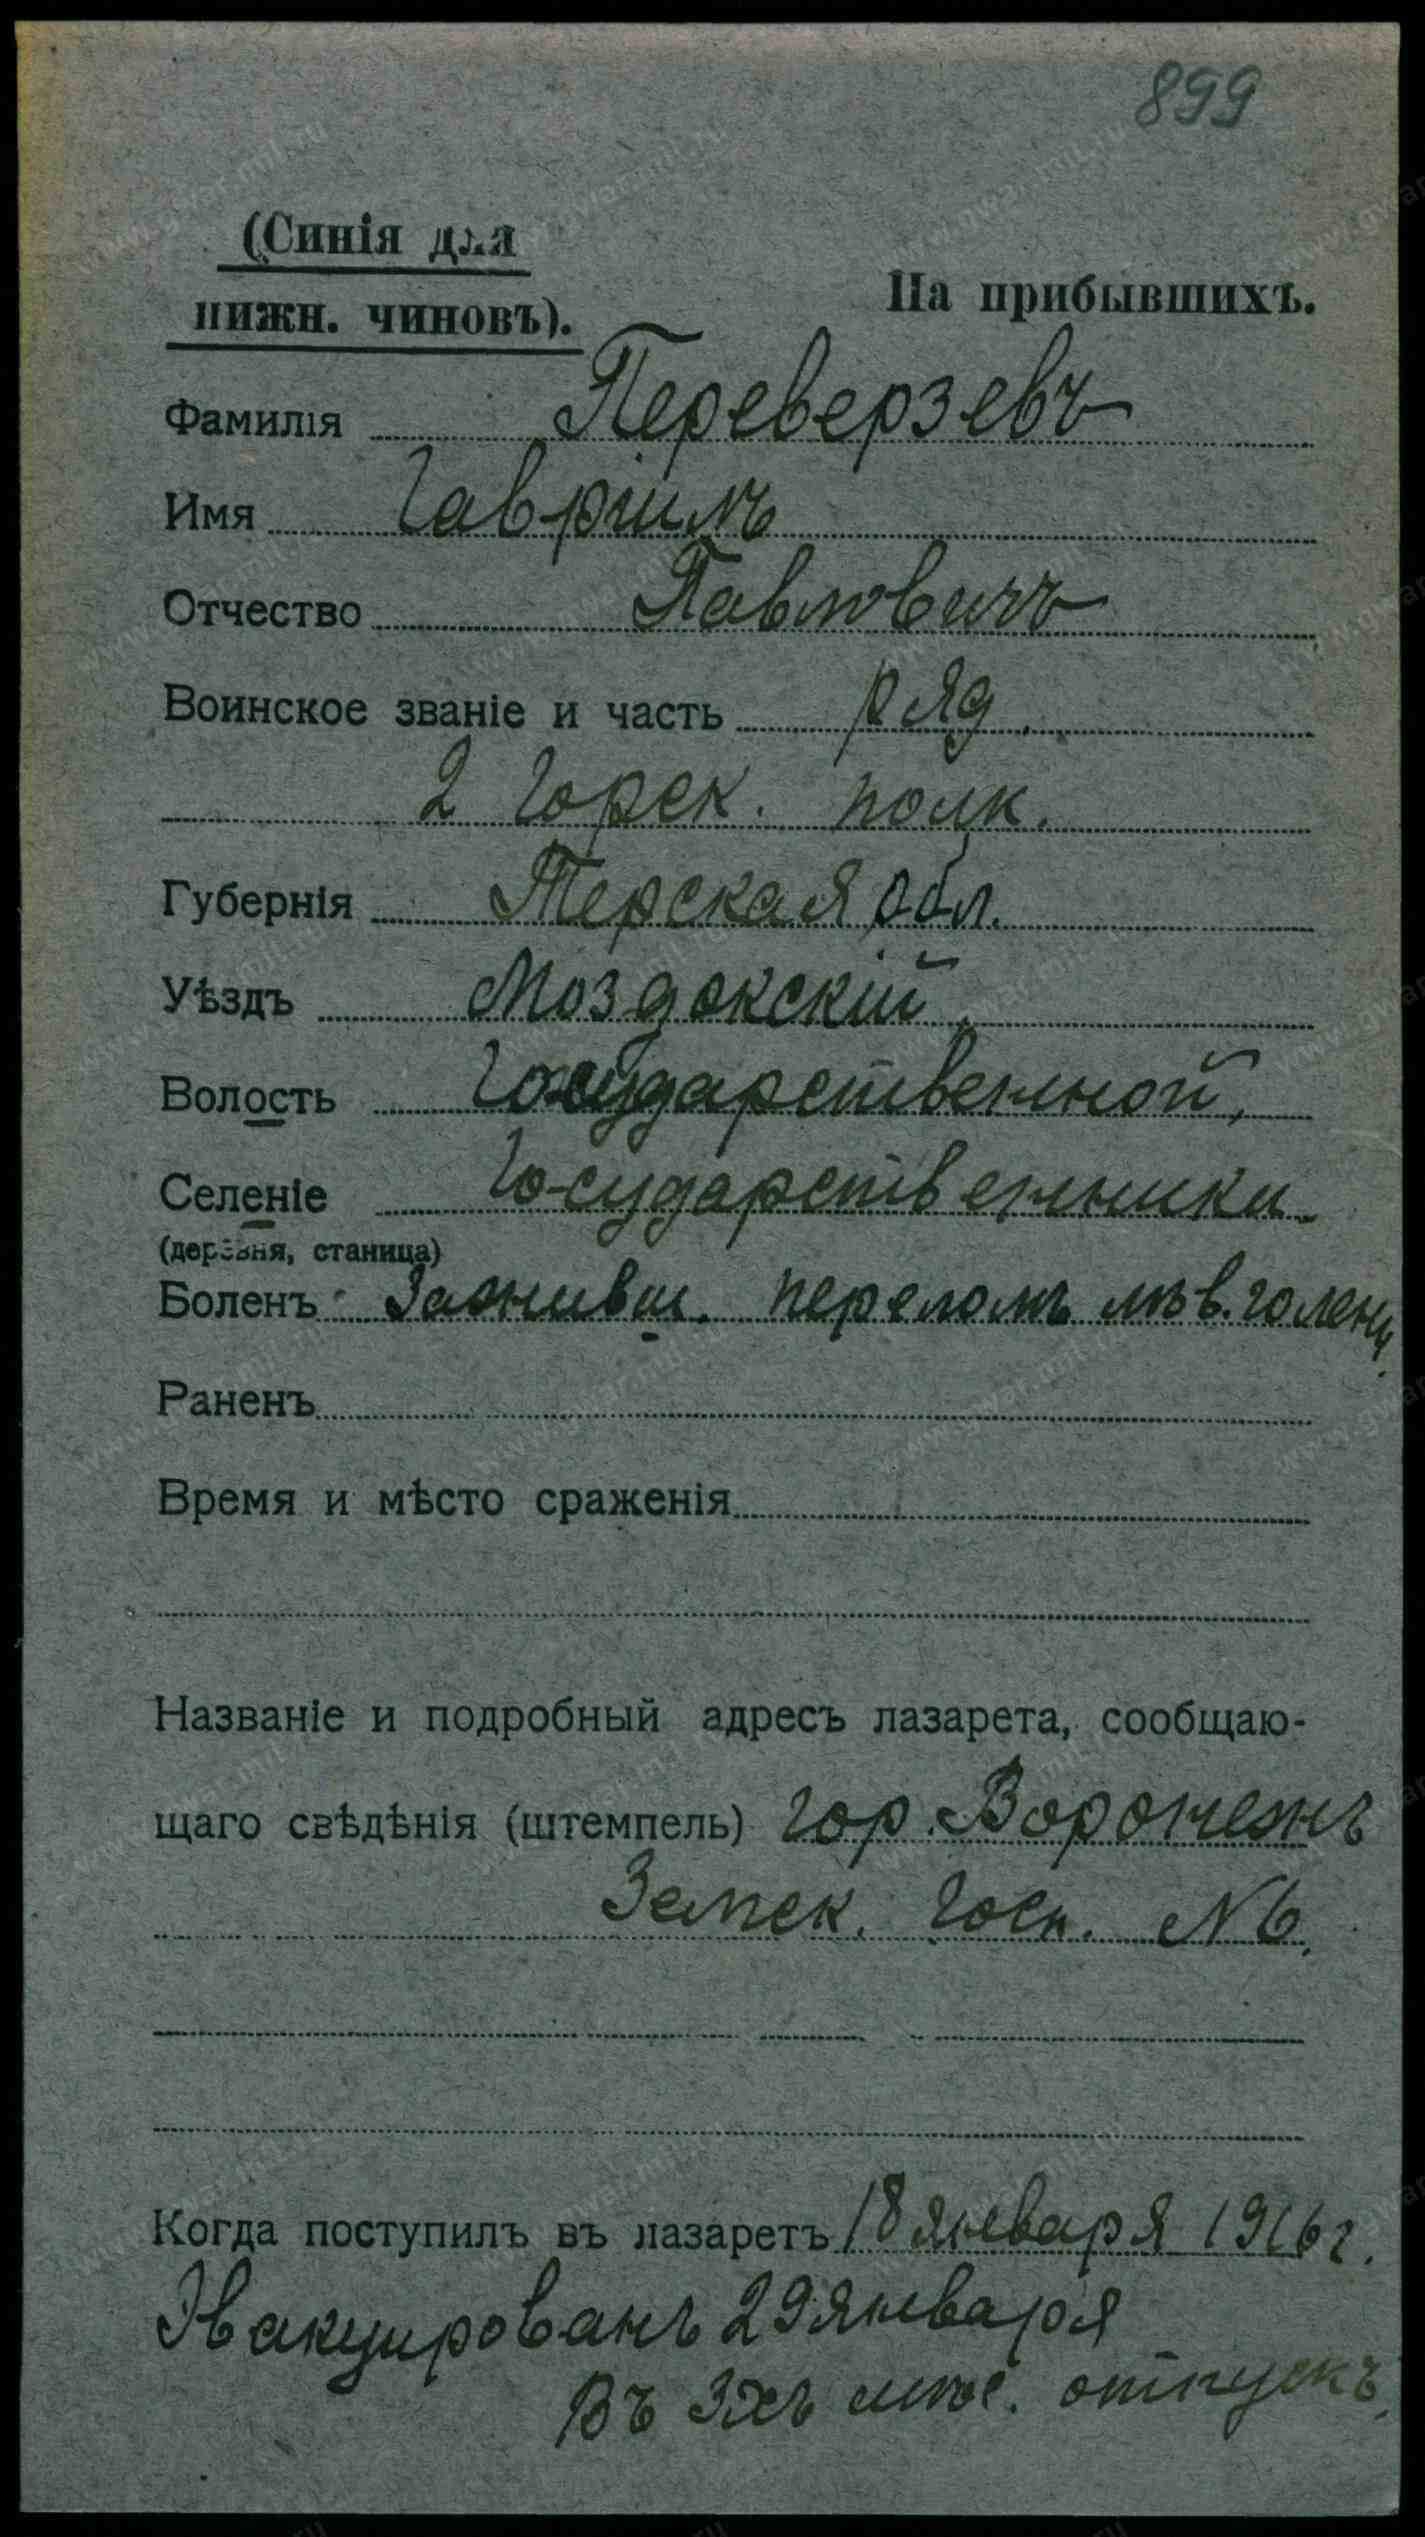 899
(Синія для
нижн. чиновъ).
На прибывшихъ.
Фамилія Переверзевъ
Имя Гавріилъ
Отчество Павловичъ
Воинское званіе и часть ряд.
2 Горск. полк.
Губернія Терская обл.
Уѣздъ Моздокскій
Волость Государственной,
Селеніе Государственники
(деревня, станица)
Боленъ Заживш. переломъ лѣв. голени
Раненъ
Время и мѣсто сраженія
Названіе и подробный адресъ лазарета, сообщаю-
щаго свѣдѣнія (штемпель) гор. Воронежъ
Земск. Госп. № 6.
Когда поступилъ въ лазаретъ 18 января 1916 г.
Эвакуированъ 29 января
въ 3хъ мѣс. отпускъ.